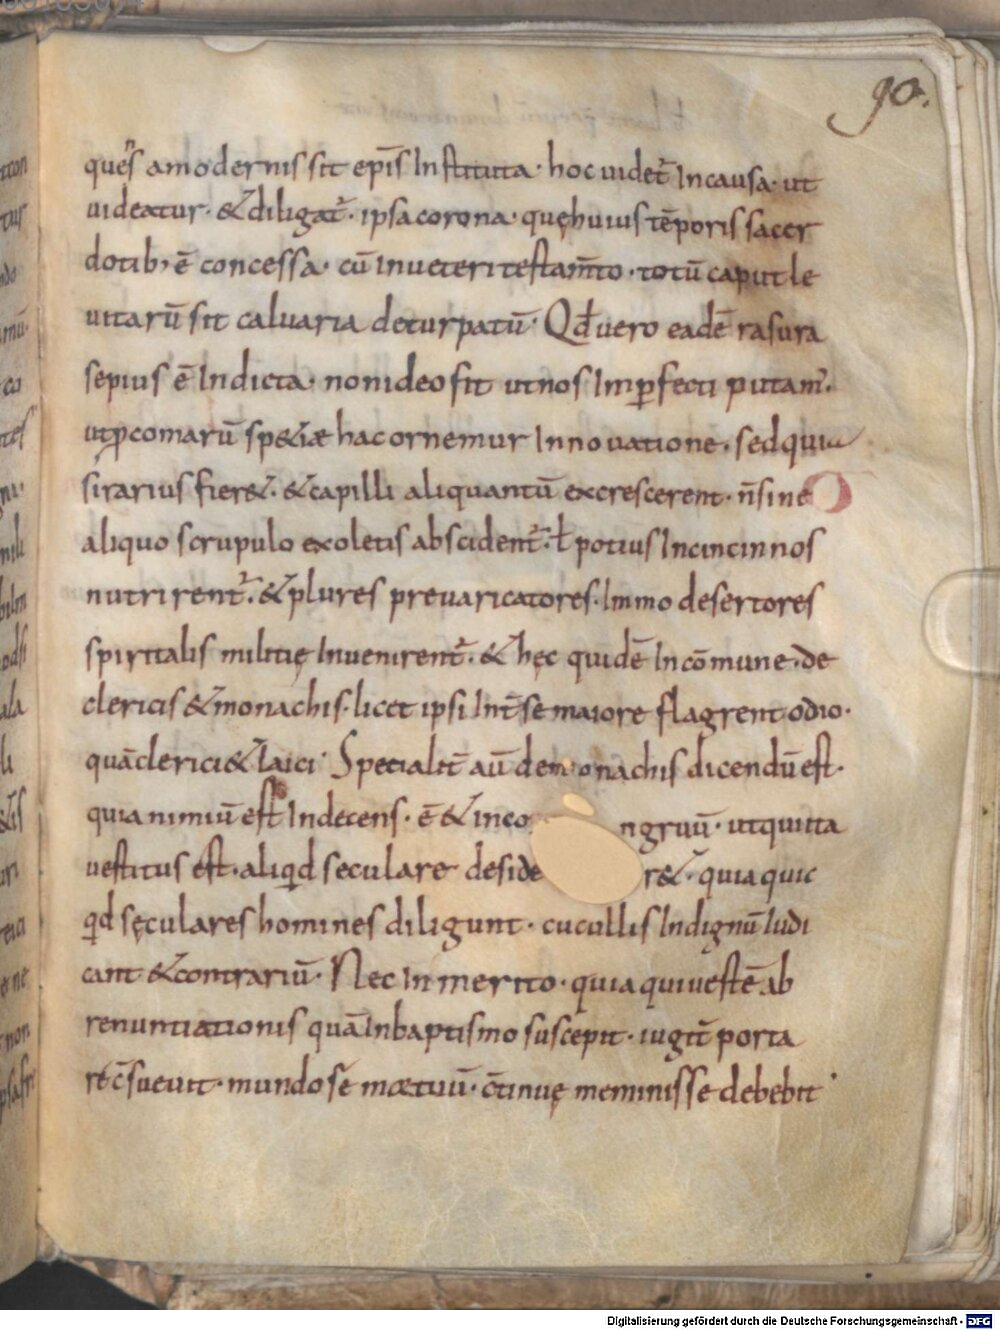 90.
queſ amoderniſ ſit ep̄iſ Inſtituta · hoc uidet̄ Incauſa · ut
uideatur · &diligat̄ · ipſa corona · quęhuiuſ tēporiſ ſacer
dotib; ē conceſſa · cū Inueteri teſtam̄to · totū caput le
uitarū ſit caluaria deturpatū · Qđ uero eadē raſura
ſepiuſ ē Indicta · nonideo fit utnoſ Imꝑfecti putam̄ ·
utꝓcomarū ſp&iæ hac ornemur Innouatione · ſedquia
ſirariuſ fier& · &capilli aliquantū excreſcerent · n̄ ſine
aliquo ſcrupulo exoletiſ abſcident̄ · ł potiuſ Incincinnoſ
nutrirent̄ · &plureſ preuaricatoreſ · Immo deſertoreſ
ſpiritaliſ militię Inuenirent̄ · & hęc quidē Incōmune · de
clericiſ &monachiſ · licet ipſi Int̄ ſe maiore flagrent odio ·
quā clerici & laici · Specialit̄ aū demonachiſ dicendū eſt ·
quia nimiū eſt Indecenſ · ē & inco ngruū · utquita
ueſtituſ eſt · aliqđ ſeculare deſide r& · quia quic
qđ ſęculareſ homineſ diligunt · cuculliſ Indignū Iudi
cant &contrariū · Nec Inmerito · quia quiueſtē ab
renuntiationiſ quā Inbaptiſmo ſuſcepit · iugit̄ porta
re c̄ſueuit · mundo ſe mœtuū · c̄tinuę meminiſſe debebit
Digitalisierung gefördert durch die Deutsche Forschungsgemeinschaft - DFG